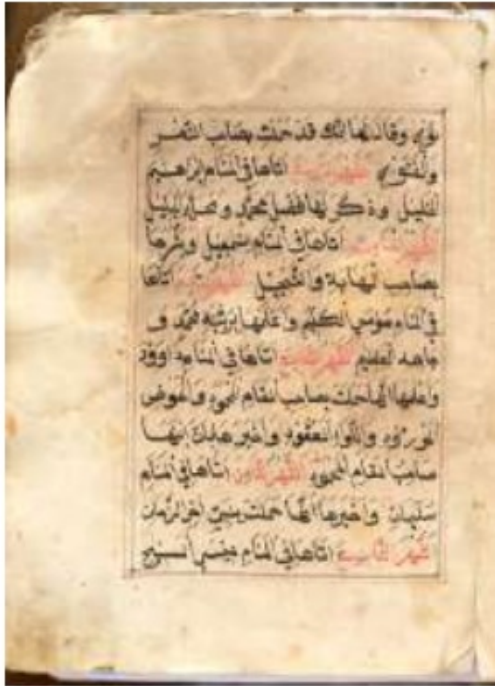 نوح وقال لها انك قد حملت بصاحب النصر
والفتوح الشهر الرابع اتاها في المنام ابراهيم
الخليل وذكر لها فضل محمد و الجليل
الشهر الخامس اتاها في المنام اسمعيل وبشرها
بصاحب المهابة والتبجيل الشهر السادس اتاها
في المنام موسى الكليم واعلمها برتبة محمد و
جاهه العظيم الشهر السابع اتاها في المنام داوود
واعلمها انها حملت بصاحب المقام المحمود والحوض
المورود واللواء المعقود
صاحب المقام المحمود الشهر الثامن اتاها في المنام
سليمان واخبرها انها حملت بنبي اخر الزمان
الشهر التاسع اتاها في المنام عيسى المسيح